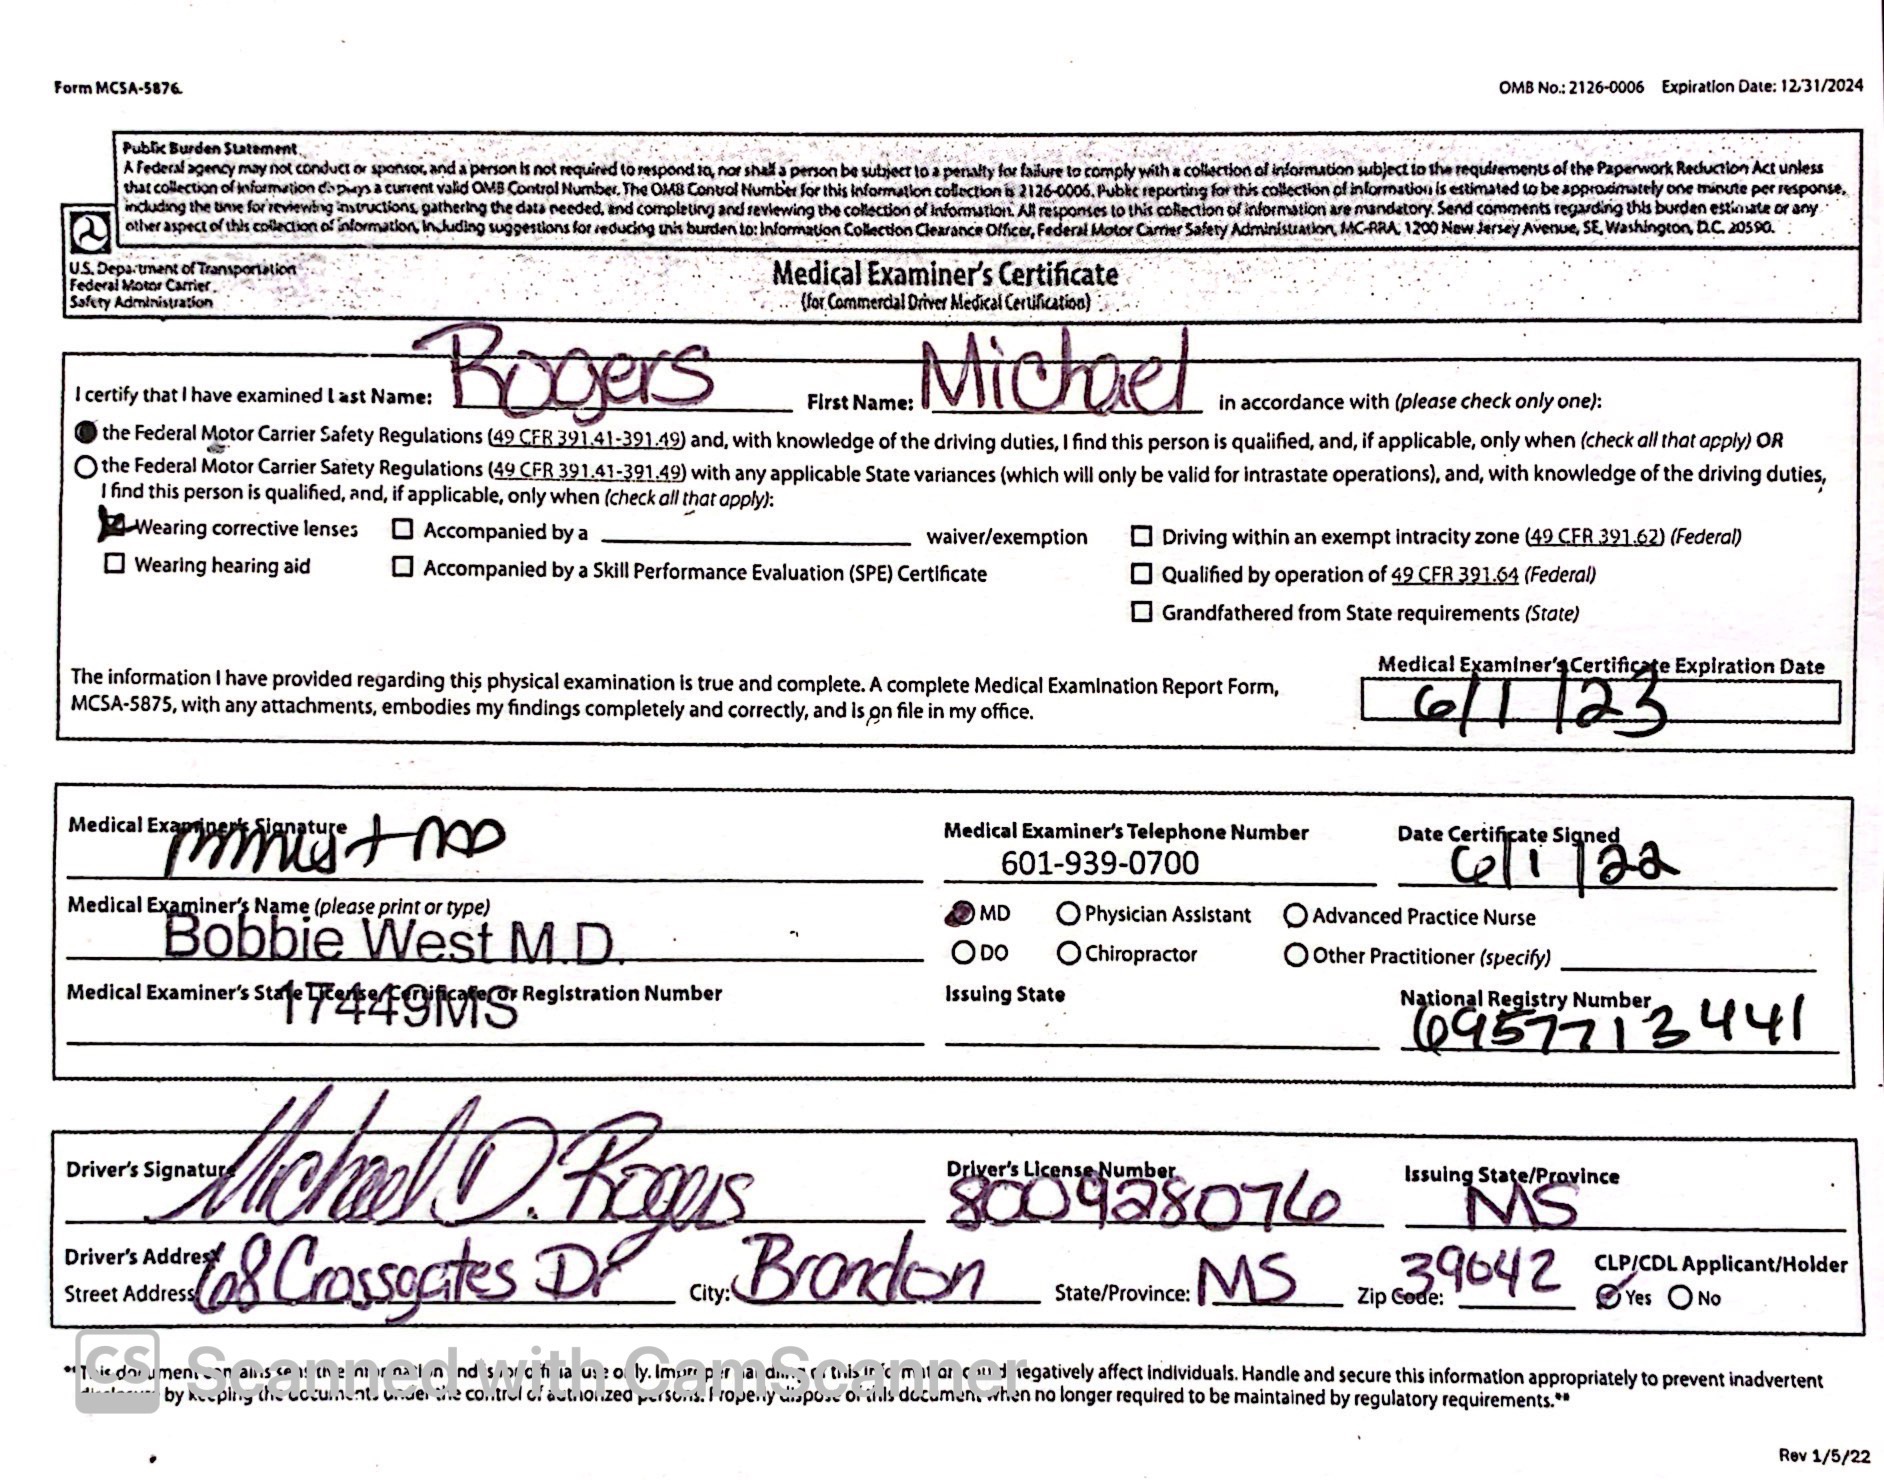 Form MCSA-5876
OMB No.: 2126-0006 Expiration Date: 12/31/2024
Public Burden Statement
A Federal agency may not conduct or sponsor, and a person is not required to respond to, nor shall a person be subject to a penalty for failure to comply with a collection of information subject to the requirements of the Paperwork Reduction Act unless
that collection of information displays a current valid OMB Control Number. The OMB Control Number for this information collection is 2126-0006. Public reporting for this collection of information is estimated to be approximately one minute per response,
including the time for reviewing instructions, gathering the data needed, and completing and reviewing the collection of information. All responses to this collection of information are mandatory. Send comments regarding this burden estimate or any
other aspect of this collection of information, including suggestions for reducing this burden to: Information Collection Clearance Officer, Federal Motor Carrier Safety Administration, MC-RRA, 1200 New Jersey Avenue, SE, Washington, D.C. 20590.
U.S. Department of Transportation
Federal Motor Carrier
Safety Administration
Medical Examiner's Certificate
(for Commercial Driver Medical Certification)
I certify that I have examined Last Name: Rogers First Name: Michael in accordance with (please check only one):
the Federal Motor Carrier Safety Regulations (49 CFR 391.41-391.49) and, with knowledge of the driving duties, I find this person is qualified, and, if applicable, only when (check all that apply) OR
the Federal Motor Carrier Safety Regulations (49 CFR 391.41-391.49) with any applicable State variances (which will only be valid for intrastate operations), and, with knowledge of the driving duties,
I find this person is qualified, and, if applicable, only when (check all that apply):
Wearing corrective lenses Accompanied by a waiver/exemption Driving within an exempt intracity zone (49 CFR 391.62) (Federal)
Wearing hearing aid Accompanied by a Skill Performance Evaluation (SPE) Certificate Qualified by operation of 49 CFR 391.64 (Federal)
Grandfathered from State requirements (State)
The information I have provided regarding this physical examination is true and complete. A complete Medical Examination Report Form,
MCSA-5875, with any attachments, embodies my findings completely and correctly, and is on file in my office.
Medical Examiner's Certificate Expiration Date
6/1/23
Medical Examiner's Signature
Medical Examiner's Telephone Number
601-939-0700
Date Certificate Signed
6/1/22
Medical Examiner's Name (please print or type)
Bobbie West M.D.
MD Physician Assistant Advanced Practice Nurse
DO Chiropractor Other Practitioner (specify)
Medical Examiner's State License, Certificate, or Registration Number
17449MS
Issuing State
National Registry Number
6957713441
Driver's Signature
Michael D. Rogers
Driver's License Number
800928076
Issuing State/Province
MS
Driver's Address
Street Address: 68 Crossgates Dr City: Brandon State/Province: MS Zip Code: 39042
CLP/CDL Applicant/Holder
Yes No
**This document contains sensitive information and is for official use only. Improper handling of this information could negatively affect individuals. Handle and secure this information appropriately to prevent inadvertent
disclosure by keeping the documents under the control of authorized persons. Properly dispose of this document when no longer required to be maintained by regulatory requirements.**
CS Scanned with CamScanner
Rev 1/5/22